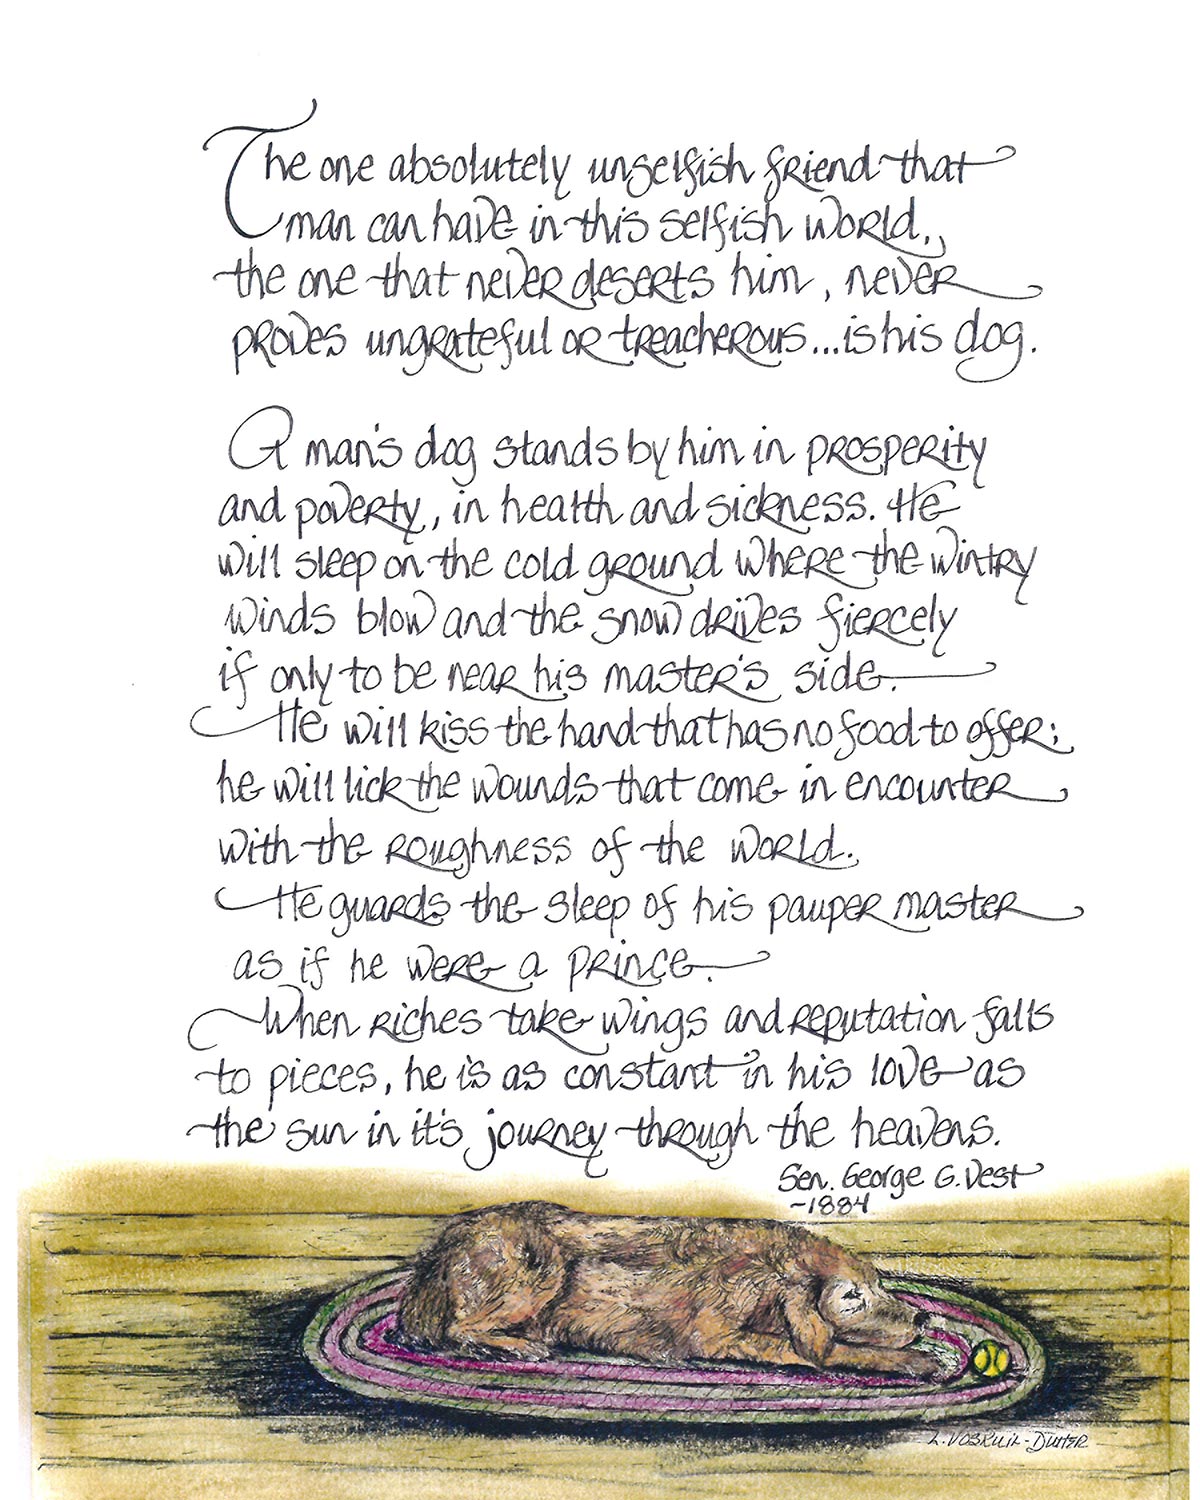 The one absolutely unselfish friend that
man can have in this selfish world,
the one that never deserts him, never
proves ungrateful or treacherous...is his dog.
A man's dog stands by him in prosperity
and poverty, in health and sickness. He
will sleep on the cold ground where the wintry
winds blow and the snow drives fiercely
if only to be near his master's side.
He will kiss the hand that has no food to offer;
he will lick the wounds that come in encounter
with the roughness of the world.
He guards the sleep of his pauper master
as if he were a prince.
When riches take wings and reputation falls
to pieces, he is as constant in his love as
the sun in it's journey through the heavens.
Sen. George G. Vest
-1884
L. VOSKUIL-DUTTER